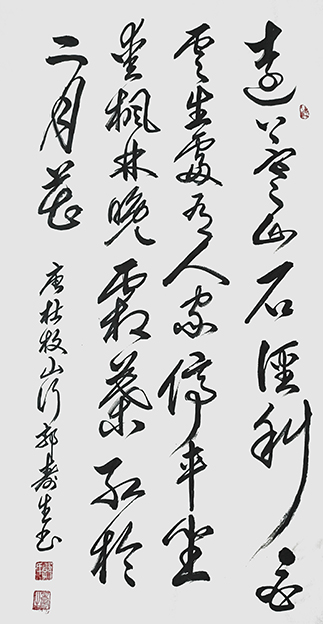 遠上寒山石徑斜白
雲生處有人家停車坐
愛楓林晚霜葉紅於
二月花
唐杜牧山行郭壽生書